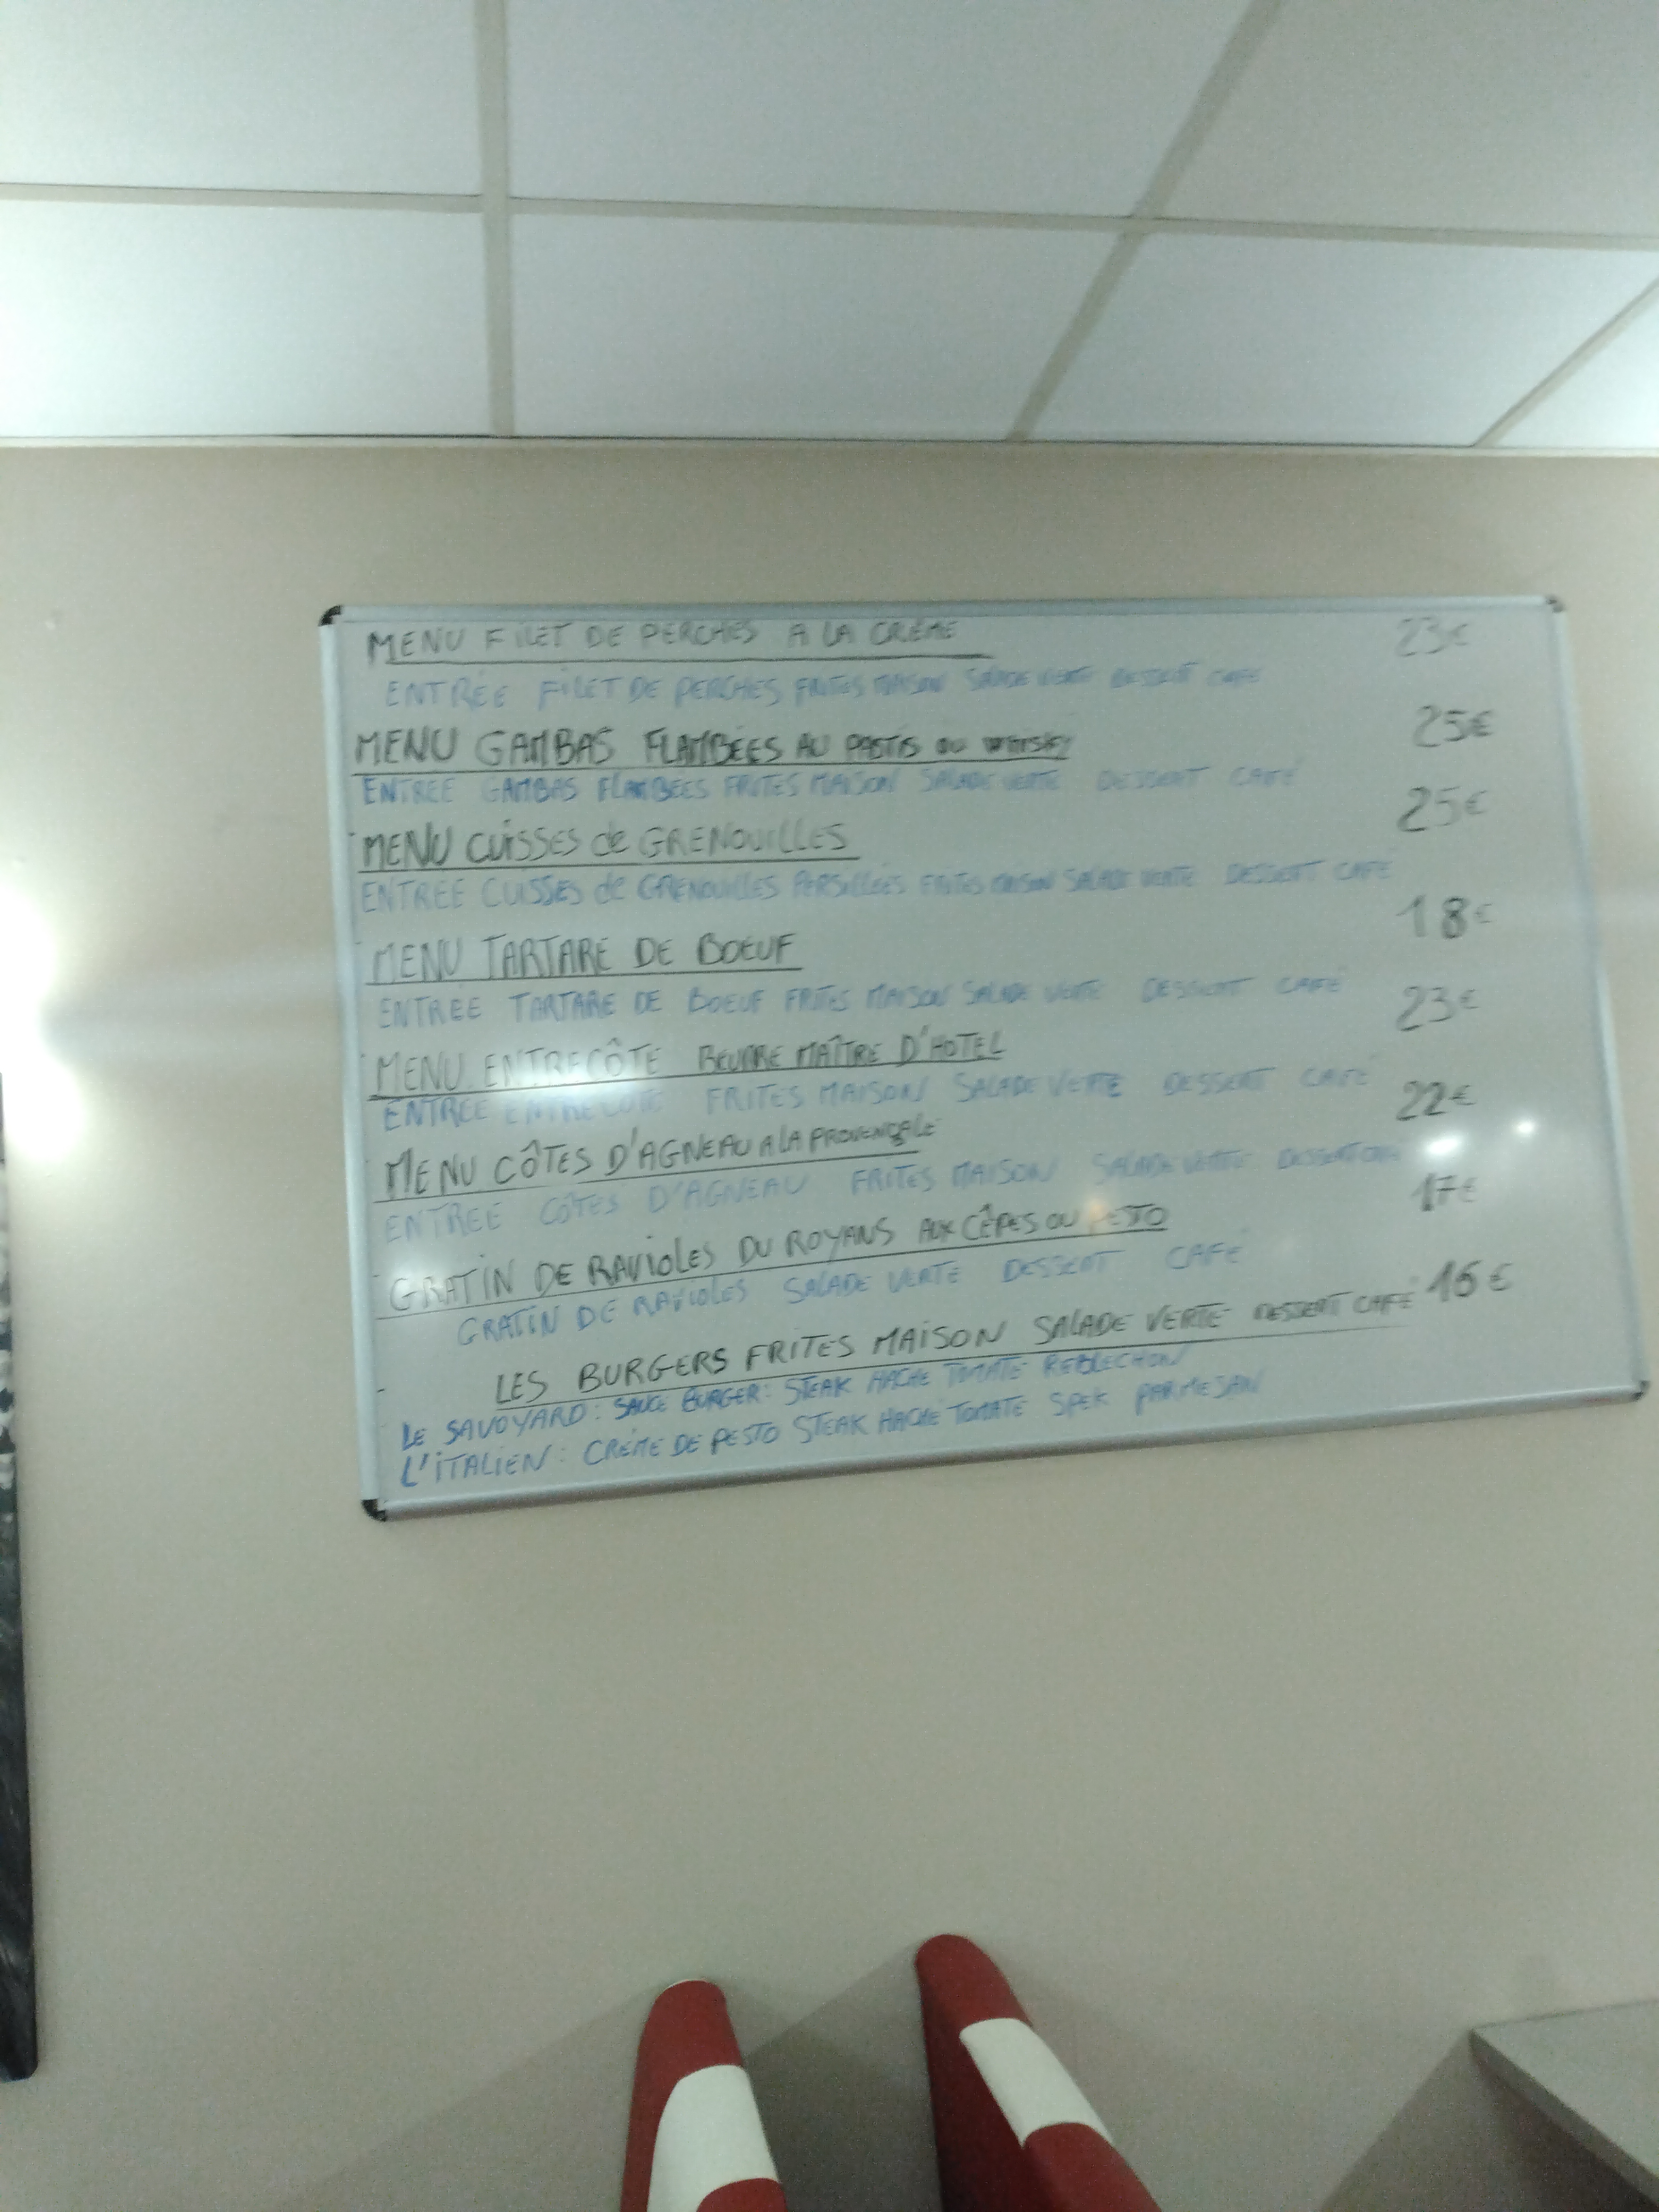 MENU FILET DE PERCHES A LA CRÈME 23€
ENTRÉE FILET DE PERCHES FRITES MAISON SALADE VERTE DESSERT CAFÉ
MENU GAMBAS FLAMBÉES AU PASTIS OU WHISKY 25€
ENTREE GAMBAS FLAMBÉES FRITES MAISON SALADE VERTE DESSERT CAFÉ
MENU CUISSES de GRENOUILLES 25€
ENTREE CUISSES de GRENOUILLES PERSILLÉES FRITES MAISON SALADE VERTE DESSERT CAFÉ
MENU TARTARE DE BOEUF 18€
ENTREE TARTARE DE BOEUF FRITES MAISON SALADE VERTE DESSERT CAFÉ
MENU ENTRECÔTE BEURRE MAÎTRE D'HOTEL 23€
ENTREE ENTRECÔTE FRITES MAISON SALADE VERTE DESSERT CAFÉ
MENU CÔTES D'AGNEAU A LA PROVENÇALE 22€
ENTREE CÔTES D'AGNEAU FRITES MAISON SALADE VERTE DESSERT CAFÉ
GRATIN DE RAVIOLES DU ROYANS AUX CÊPES OU PESTO 17€
GRATIN DE RAVIOLES SALADE VERTE DESSERT CAFÉ
LES BURGERS FRITES MAISON SALADE VERTE DESSERT CAFÉ 16€
LE SAVOYARD : SAUCE BURGER : STEAK HACHÉ TOMATE REBLECHON
L'ITALIEN : CRÈME DE PESTO STEAK HACHÉ TOMATE SPEK PARMESAN